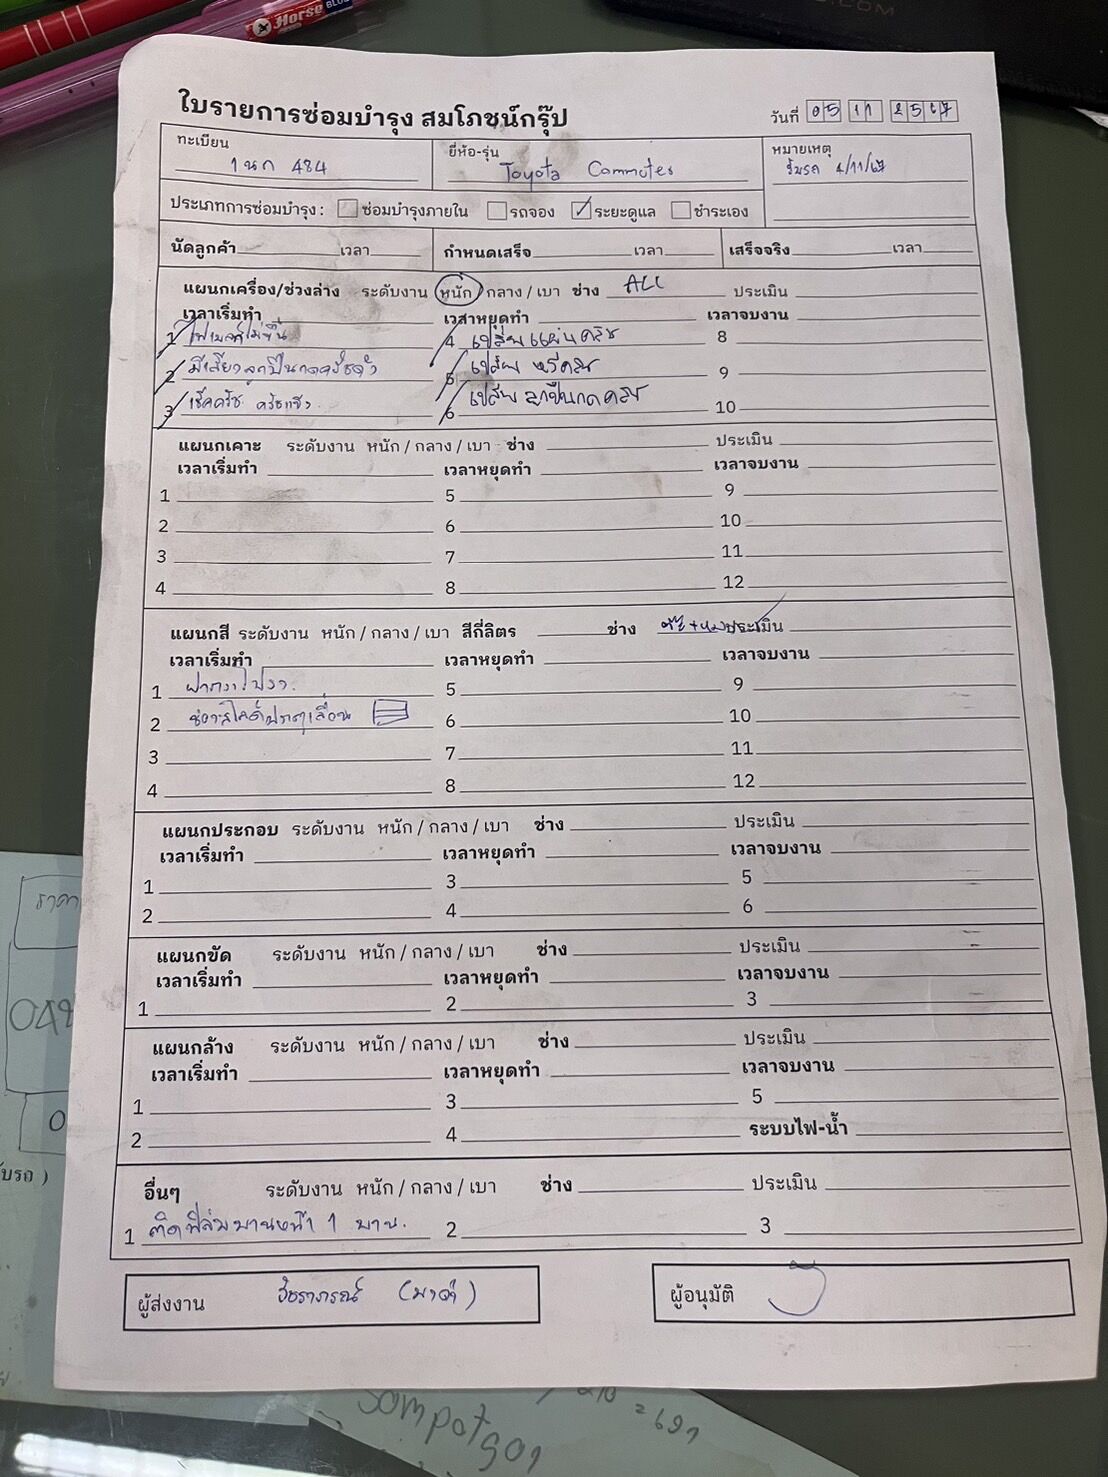 Horse BLUE
.COM
ใบรายการซ่อมบำรุง สมโภชน์กรุ๊ป
วันที่ 05 11 2567
ทะเบียน 1นก 484 ยี่ห้อ-รุ่น Toyota Commuter หมายเหตุ
รับรถ 4/11/67
ประเภทการซ่อมบำรุง : ซ่อมบำรุงภายใน รถจอง ระยะดูแล ชำระเอง
นัดลูกค้า เวลา กำหนดเสร็จ เวลา เสร็จจริง เวลา
แผนกเครื่อง/ช่วงล่าง ระดับงาน หนัก / กลาง / เบา ช่าง ALL ประเมิน
เวลาเริ่มทำ เวลาหยุดทำ เวลาจบงาน
1 ไม่ขึ้น 4 เปลี่ยนแผ่นครัช 8
2 มีเสียงลูกปืนกดครัชดัง 5 เปลี่ยน หวีครัช 9
3 เช็คครัช ครัชแข็ง 6 เปลี่ยน ลูกปืนกดครัช 10
แผนกเคาะ ระดับงาน หนัก / กลาง / เบา ช่าง ประเมิน
เวลาเริ่มทำ เวลาหยุดทำ เวลาจบงาน
1 5 9
2 6 10
3 7 11
4 8 12
แผนกสี ระดับงาน หนัก / กลาง / เบา สีกี่ลิตร ช่าง ประเมิน
เวลาเริ่มทำ เวลาหยุดทำ เวลาจบงาน
1 5 9
2 6 10
3 7 11
4 8 12
แผนกประกอบ ระดับงาน หนัก / กลาง / เบา ช่าง ประเมิน
เวลาเริ่มทำ เวลาหยุดทำ เวลาจบงาน
1 3 5
2 4 6
แผนกขัด ระดับงาน หนัก / กลาง / เบา ช่าง ประเมิน
เวลาเริ่มทำ เวลาหยุดทำ เวลาจบงาน
1 2 3
แผนกล้าง ระดับงาน หนัก / กลาง / เบา ช่าง ประเมิน
เวลาเริ่มทำ เวลาหยุดทำ เวลาจบงาน
1 3 5
2 4 ระบบไฟ-น้ำ
อื่นๆ ระดับงาน หนัก / กลาง / เบา ช่าง ประเมิน
1 ติดฟิล์มบานหน้า 1 บาน. 2 3
ผู้ส่งงาน ผู้อนุมัติ
ราคา